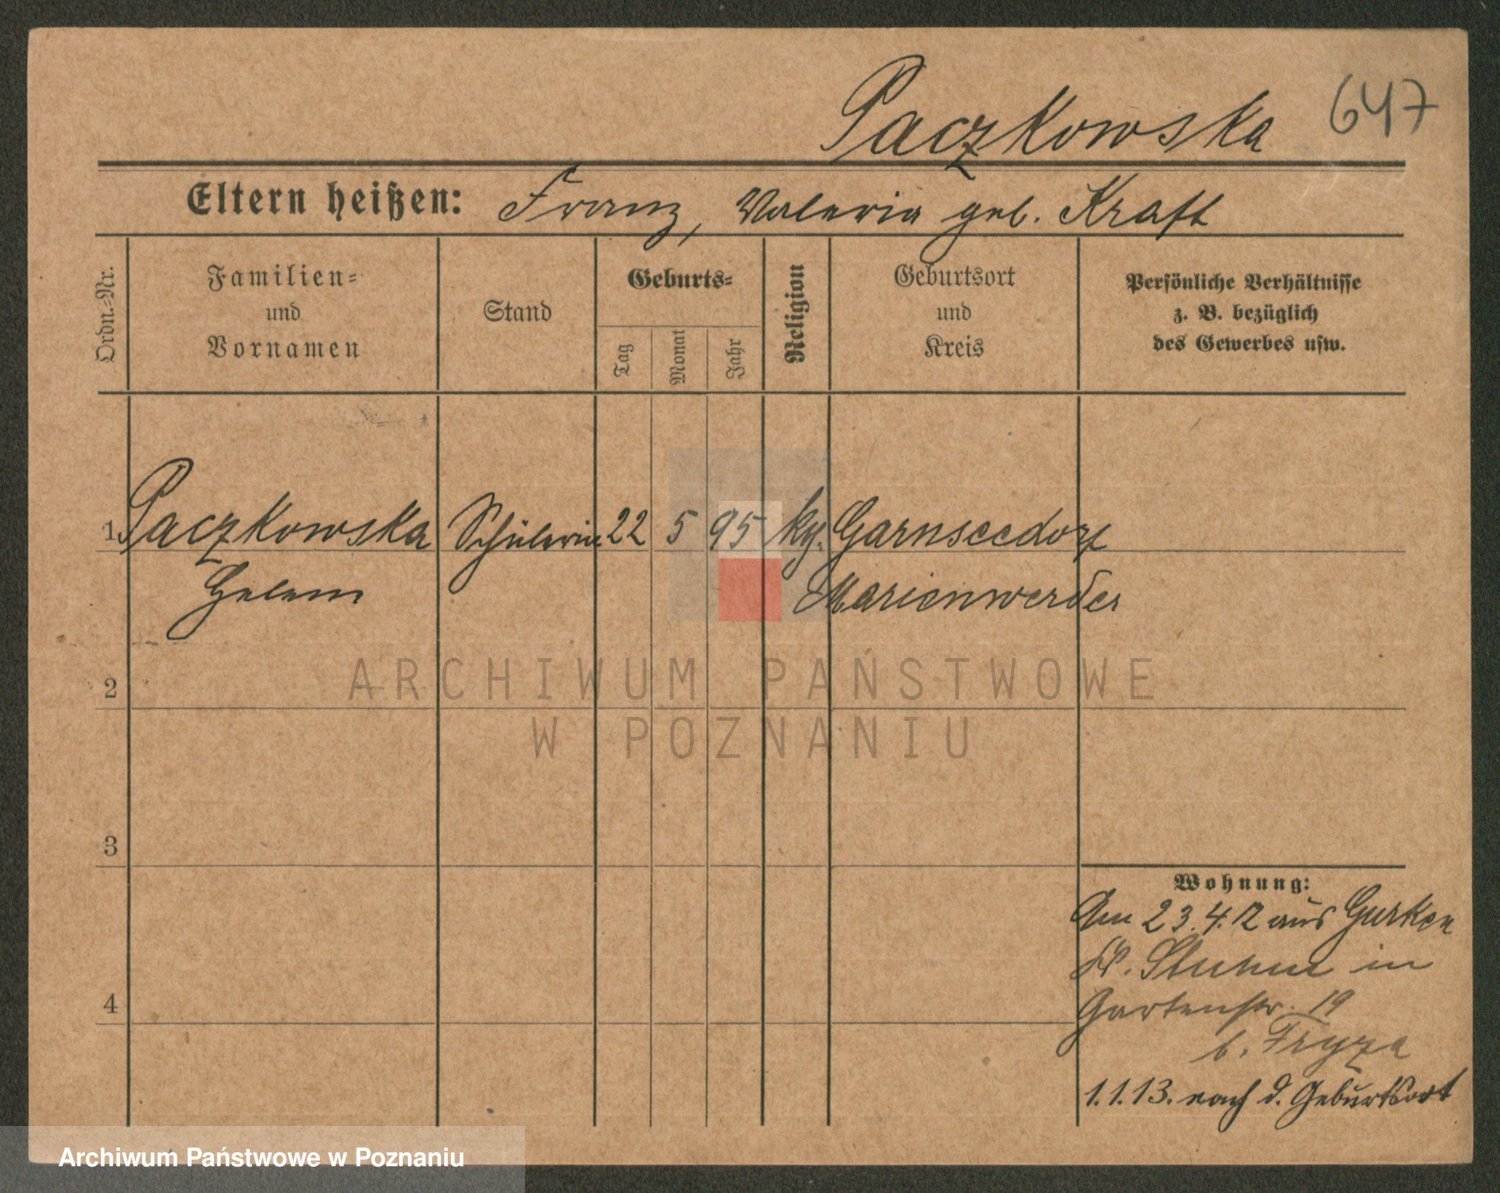 Paczkowska 647
Eltern heißen: Franz, Valeria geb. Kraft
Ordn.-Nr.
Familien-
und
Vornamen
Stand
Geburts-
Tag
Monat
Jahr
Religion
Geburtsort
und
Kreis
Persönliche Verhältnisse
z. B. bezüglich
des Gewerbes usw.
1 Paczkowska Schülerin 22 5 95 Garnseedorf
Helene Marienwerder
2
3
4
Wohnung:
Am 23.4.12 aus Gurken
Kr. Stuhm in
Gartenstr. 19
b. Fryza
1.1.13. nach d. Geburtsort
ARCHIWUM PAŃSTWOWE
W POZNANIU
Archiwum Państwowe w Poznaniu